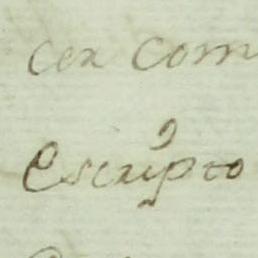 cer com
Escripto